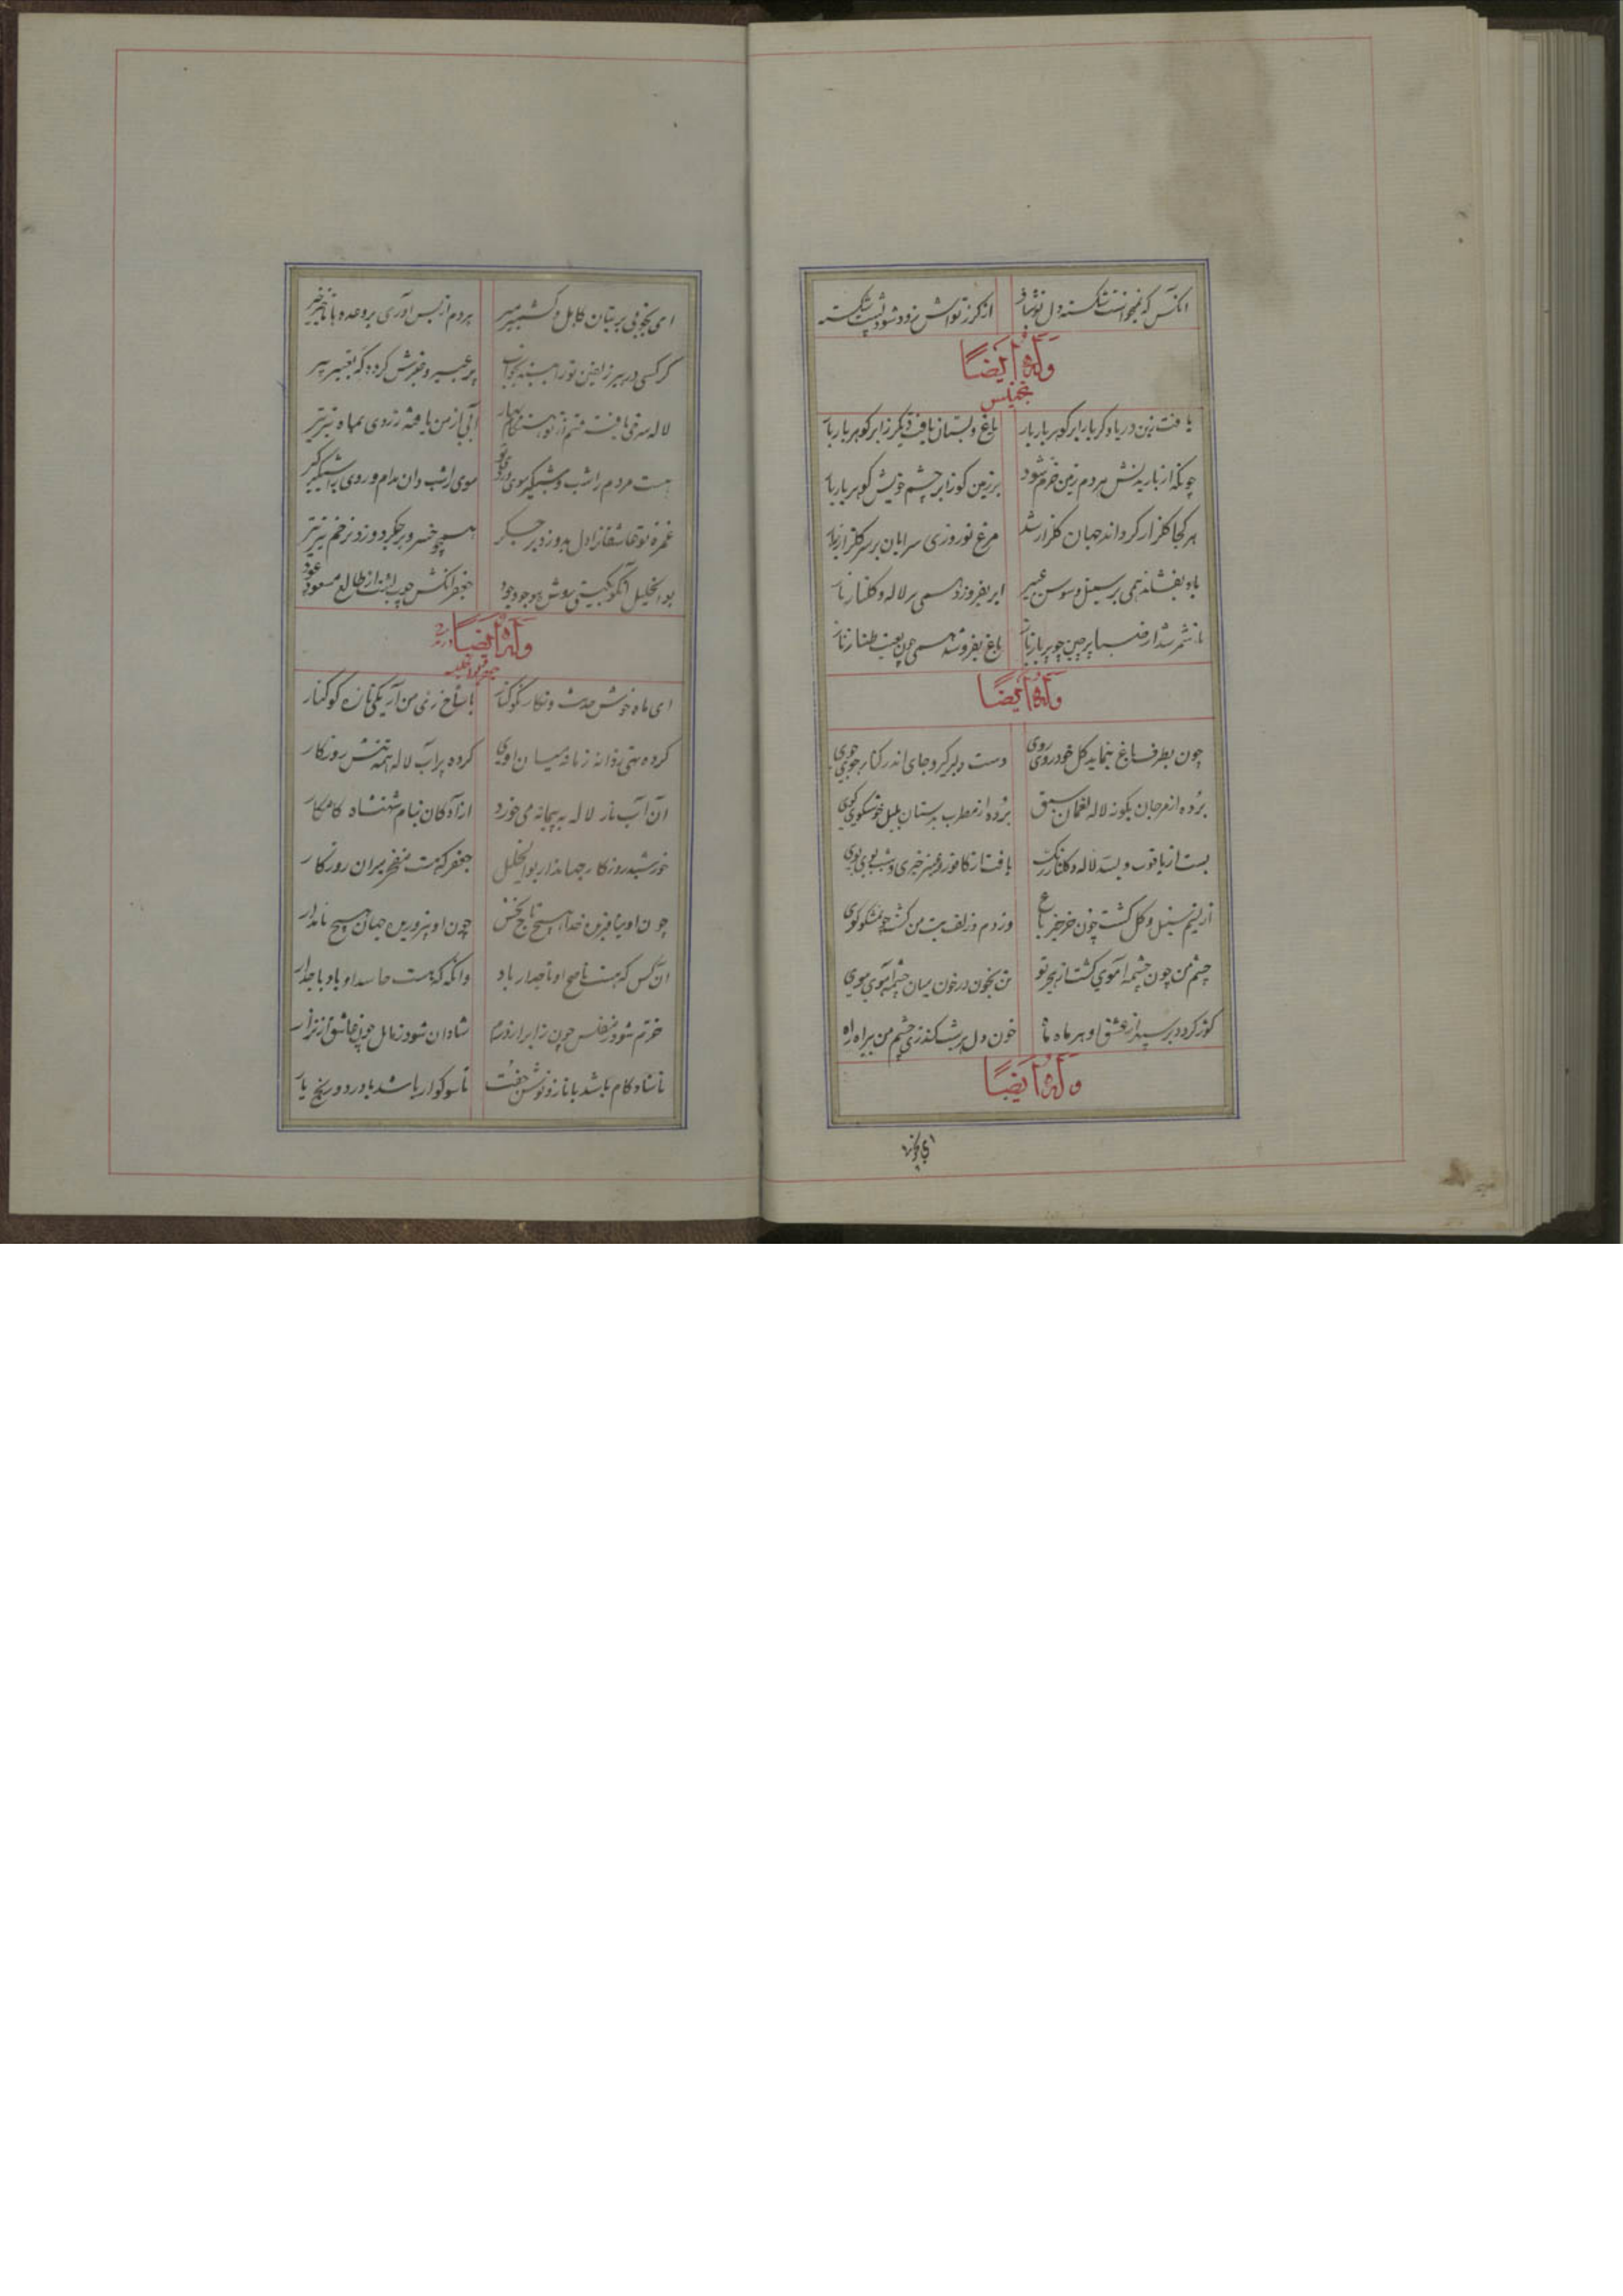 آنکس که نخواست شکسته دل تو شاد از گرز تو اش زود شود پشت شکسته
وله ایضاً
تجنیس
یافت زین دریا دگر بار ابر گوهر بار بار باغ و بستان یافت دیگر ز ابر گوهر بار بار
چونکه از باریدنش هر دم زمین خرم شود بر زمین گو ز ابر چشم خویش گوهر بار بار
هر کجا گلزار کرد اندر جهان گلزار شد مرغ نوروزی سرایان بر سر گلزار زار
باد بفشاند همی بر سنبل و سوسن عبیر ابر بفروزد همی بر لاله و گلنار نار
تا شمر شد از صبا پرچین چو پر باز باز باغ بفروشد همی چون لعبت طناز ناز
وله ایضاً
چون بطرف باغ بنماید گل خودروی روی دست دلبر گیر و جای اندر کنار جوی جوی
برده از مرجان بگونه لاله نعمان سبق برده از مطرب بدستان بلبل خوشگوی گوی
بست از یاقوت و بسد لاله و گلنار رنگ یافت از کافور و عنبر خیری و شب بوی بوی
از نسیم سنبل و گل گشت چون خرخیز باغ وز دم و زلف بت من گشت چون مشکوی کوی
چشم من چون چشمه آموی گشت از هجر تو تن بخون در خون میان چشمه آموی موی
گوژ گردد بر سپهر از عشق او هر ماه ماه خون دل بر شب کند زی چشم من بیراه راه
وله ایضاً
ای بخوبی
ای بخوبی بر بتان کابل و کشمیر میر هر دم از پس آوری بر وعده با تاخیر خیر
گر کسی در پیر زلفین تو را بیند بخواب پر عبیر و عنبرش گردد گه تعبیر پیر
لاله سرخی یافته قسم از تو هنگام بهار آبی از من یافته زردی بماه تیر تیر
هست مردم را شب و شبگیر سوی و روی تو موی را شب دان مدام و روی را شبگیر گیر
غمزه تو عاشقانرا دل بدوزد بر جگر همچو خسرو بر جگر دوزد بزخم تیر تیر
بوالخلیل آنکو بگیتی روش موجود جود جعفر آنکش چوب گشت از طالع مسعود عود
وله ایضاً
ای ماه خوش حدیث و نگار نکو کنار با شاخ رز من آر یکی تازه کوکنار
کرده تهی ز دانه زمانه میان اوی کرده پر آب لاله همه تنش روزگار
آن آب نار لاله به پیمانه می خورد آزادگان بنام شهنشاه کامگار
خورشید روزگار جهاندار بوالخلیل جعفر که هست مفخر میران روزگار
چون او نیافرید خدا هیچ تاج بخش چون او نپرورید جهان هیچ تاجدار
آن کس که هست ناصح او تاجدار باد وانکه که هست حاسد او باد با جدار
خرم شود ز مفلس چون زایر از درم شادان شود ز سائل چون عاشق از نزار
تا شادکام باشد با ناز و نوش جفت تا سوگوار باشد با درد و رنج یار